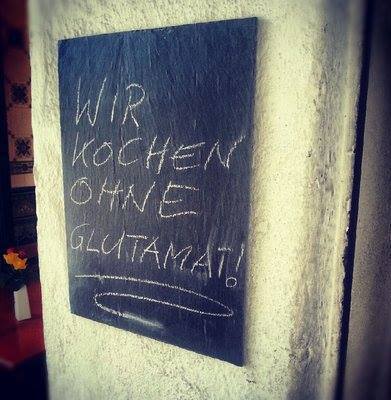 WIR
KOCHEN
OHNE
GLUTAMAT!